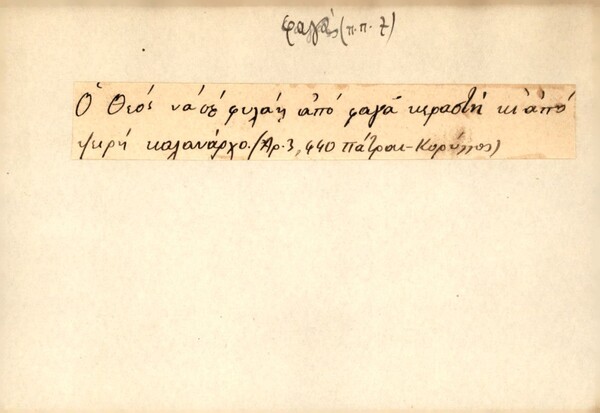 φαγάς (π.π. 7)
Ὁ Θεός νά σέ φυλάῃ ἀπό φαγᾶ κεραστή κι ἀπό
ψωρή καλανάρχο. (Ἀρ. 3, 440 Πάτραι - Κορύλλος)